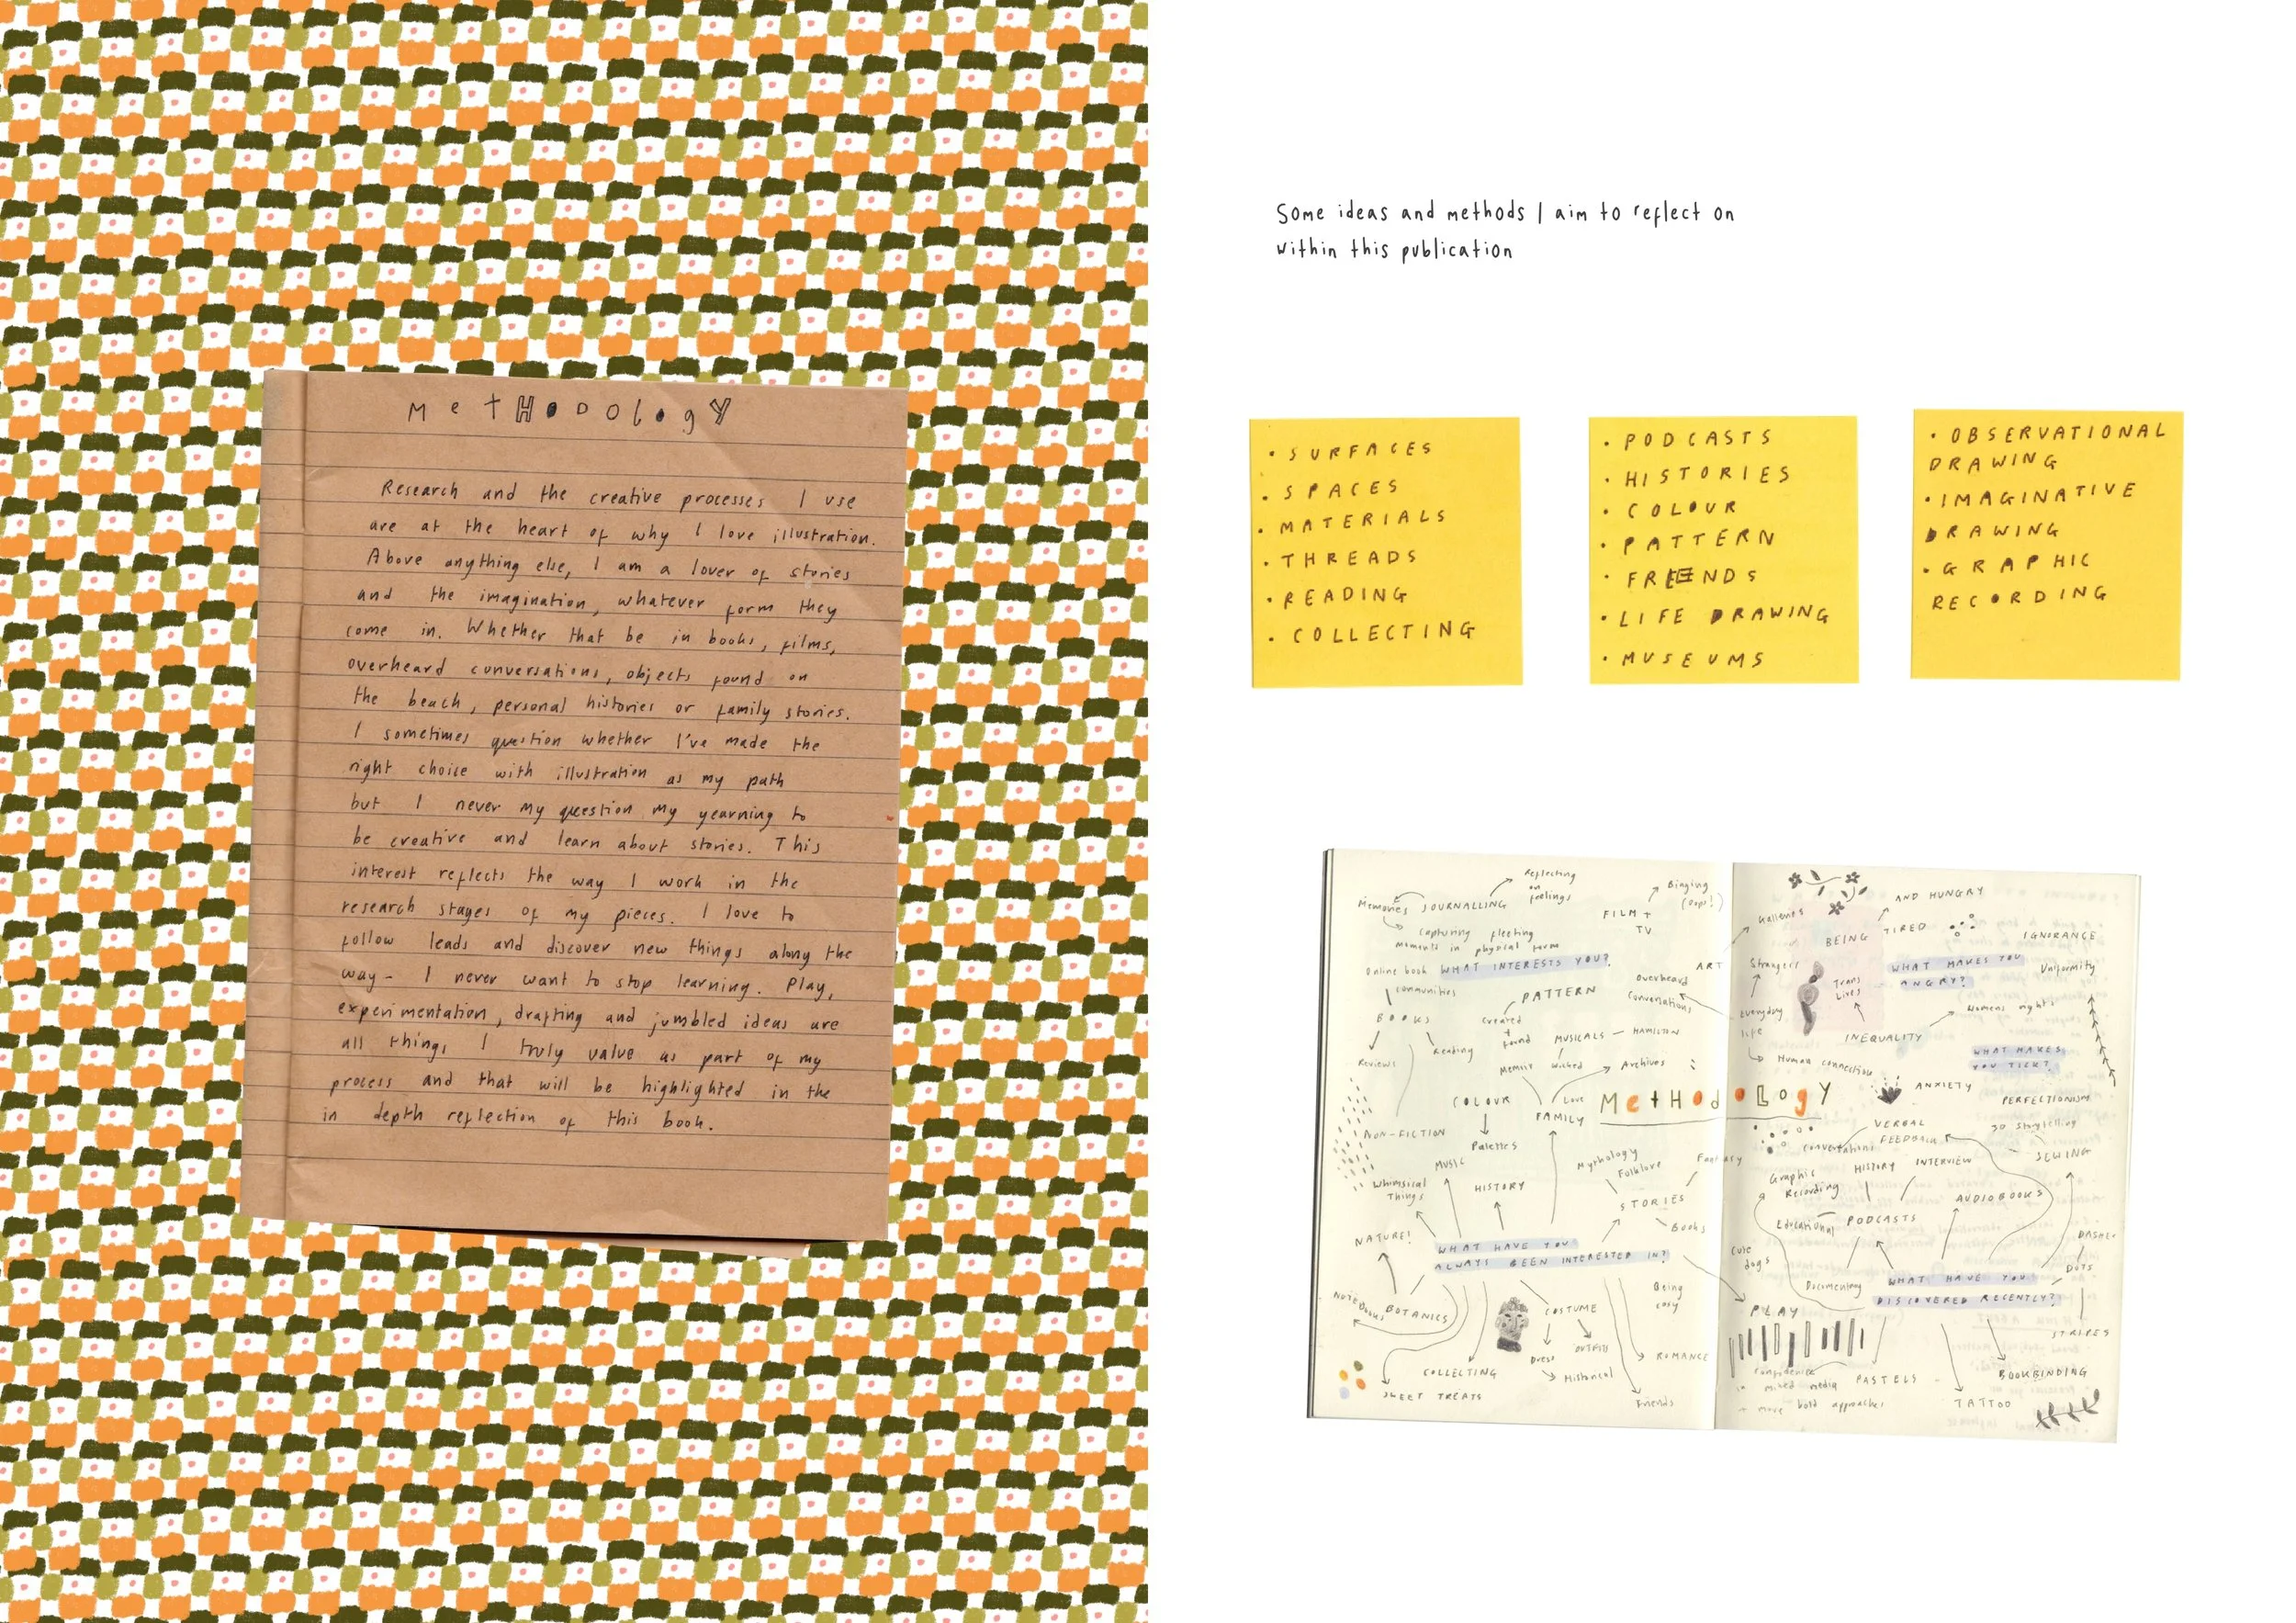 MetHodology
Research and the creative processes I use
are at the heart of why I love illustration.
Above anything else, I am a lover of stories
and the imagination, whatever form they
come in. Whether that be in books, films,
overheard conversations, objects found on
the beach, personal histories or family stories.
I sometimes question whether I've made the
right choice with illustration as my path
but I never my question my yearning to
be creative and learn about stories. This
interest reflects the way I work in the
research stages of my pieces. I love to
follow leads and discover new things along the
way - I never want to stop learning. Play,
experimentation, drafting and jumbled ideas are
all things I truly value as part of my
process and that will be highlighted in the
in depth reflection of this book.
Some ideas and methods I aim to reflect on
within this publication
• SURFACES
• SPACES
• MATERIALS
• THREADS
• READING
• COLLECTING
• PODCASTS
• HISTORIES
• COLOUR
• PATTERN
• FRIENDS
• LIFE DRAWING
• MUSEUMS
• OBSERVATIONAL
DRAWING
• IMAGINATIVE
DRAWING
• GRAPHIC
RECORDING
Memories
JOURNALLING
Reflecting
on
feelings
Capturing fleeting
moments in physical form
FILM +
TV
Binging
(oops!)
Online book
communities
WHAT INTERESTS YOU?
ART
Overheard
Conversations
PATTERN
Created
+
found
BOOKS
Reviews
Reading
MUSICALS — HAMILTON
Wicked
Memoir
Archives
COLOUR
Palettes
Love
FAMILY
NON-FICTION
MetHodoLogy
MUSIC
Whimsical
Things
HISTORY
Mythology
Folklore
Fantasy
STORIES
Books
NATURE!
WHAT HAVE YOU
ALWAYS BEEN INTERESTED IN?
NOTEBOOKS
BOTANICS
COSTUME
Dress
OUTFITS
Historical
Being
cosy
ROMANCE
COLLECTING
SWEET TREATS
Friends
Galleries
AND HUNGRY
BEING TIRED
IGNORANCE
Strangers
Trans
Lives
WHAT MAKES YOU
ANGRY?
Uniformity
Everyday
life
Womens rights
INEQUALITY
Human connection
WHAT MAKES
YOU TICK?
ANXIETY
PERFECTIONISM
VERBAL
FEEDBACK
Conversations
3D Storytelling
SEWING
Graphic
Recording
HISTORY
INTERVIEW
AUDIOBOOKS
Educational
PODCASTS
Cute
dogs
Documentary
WHAT HAVE YOU
DISCOVERED RECENTLY?
DOTS
STRIPES
PLAY
Confidence
in mixed media
→ more bold approaches
PASTELS
BOOKBINDING
TATTOO